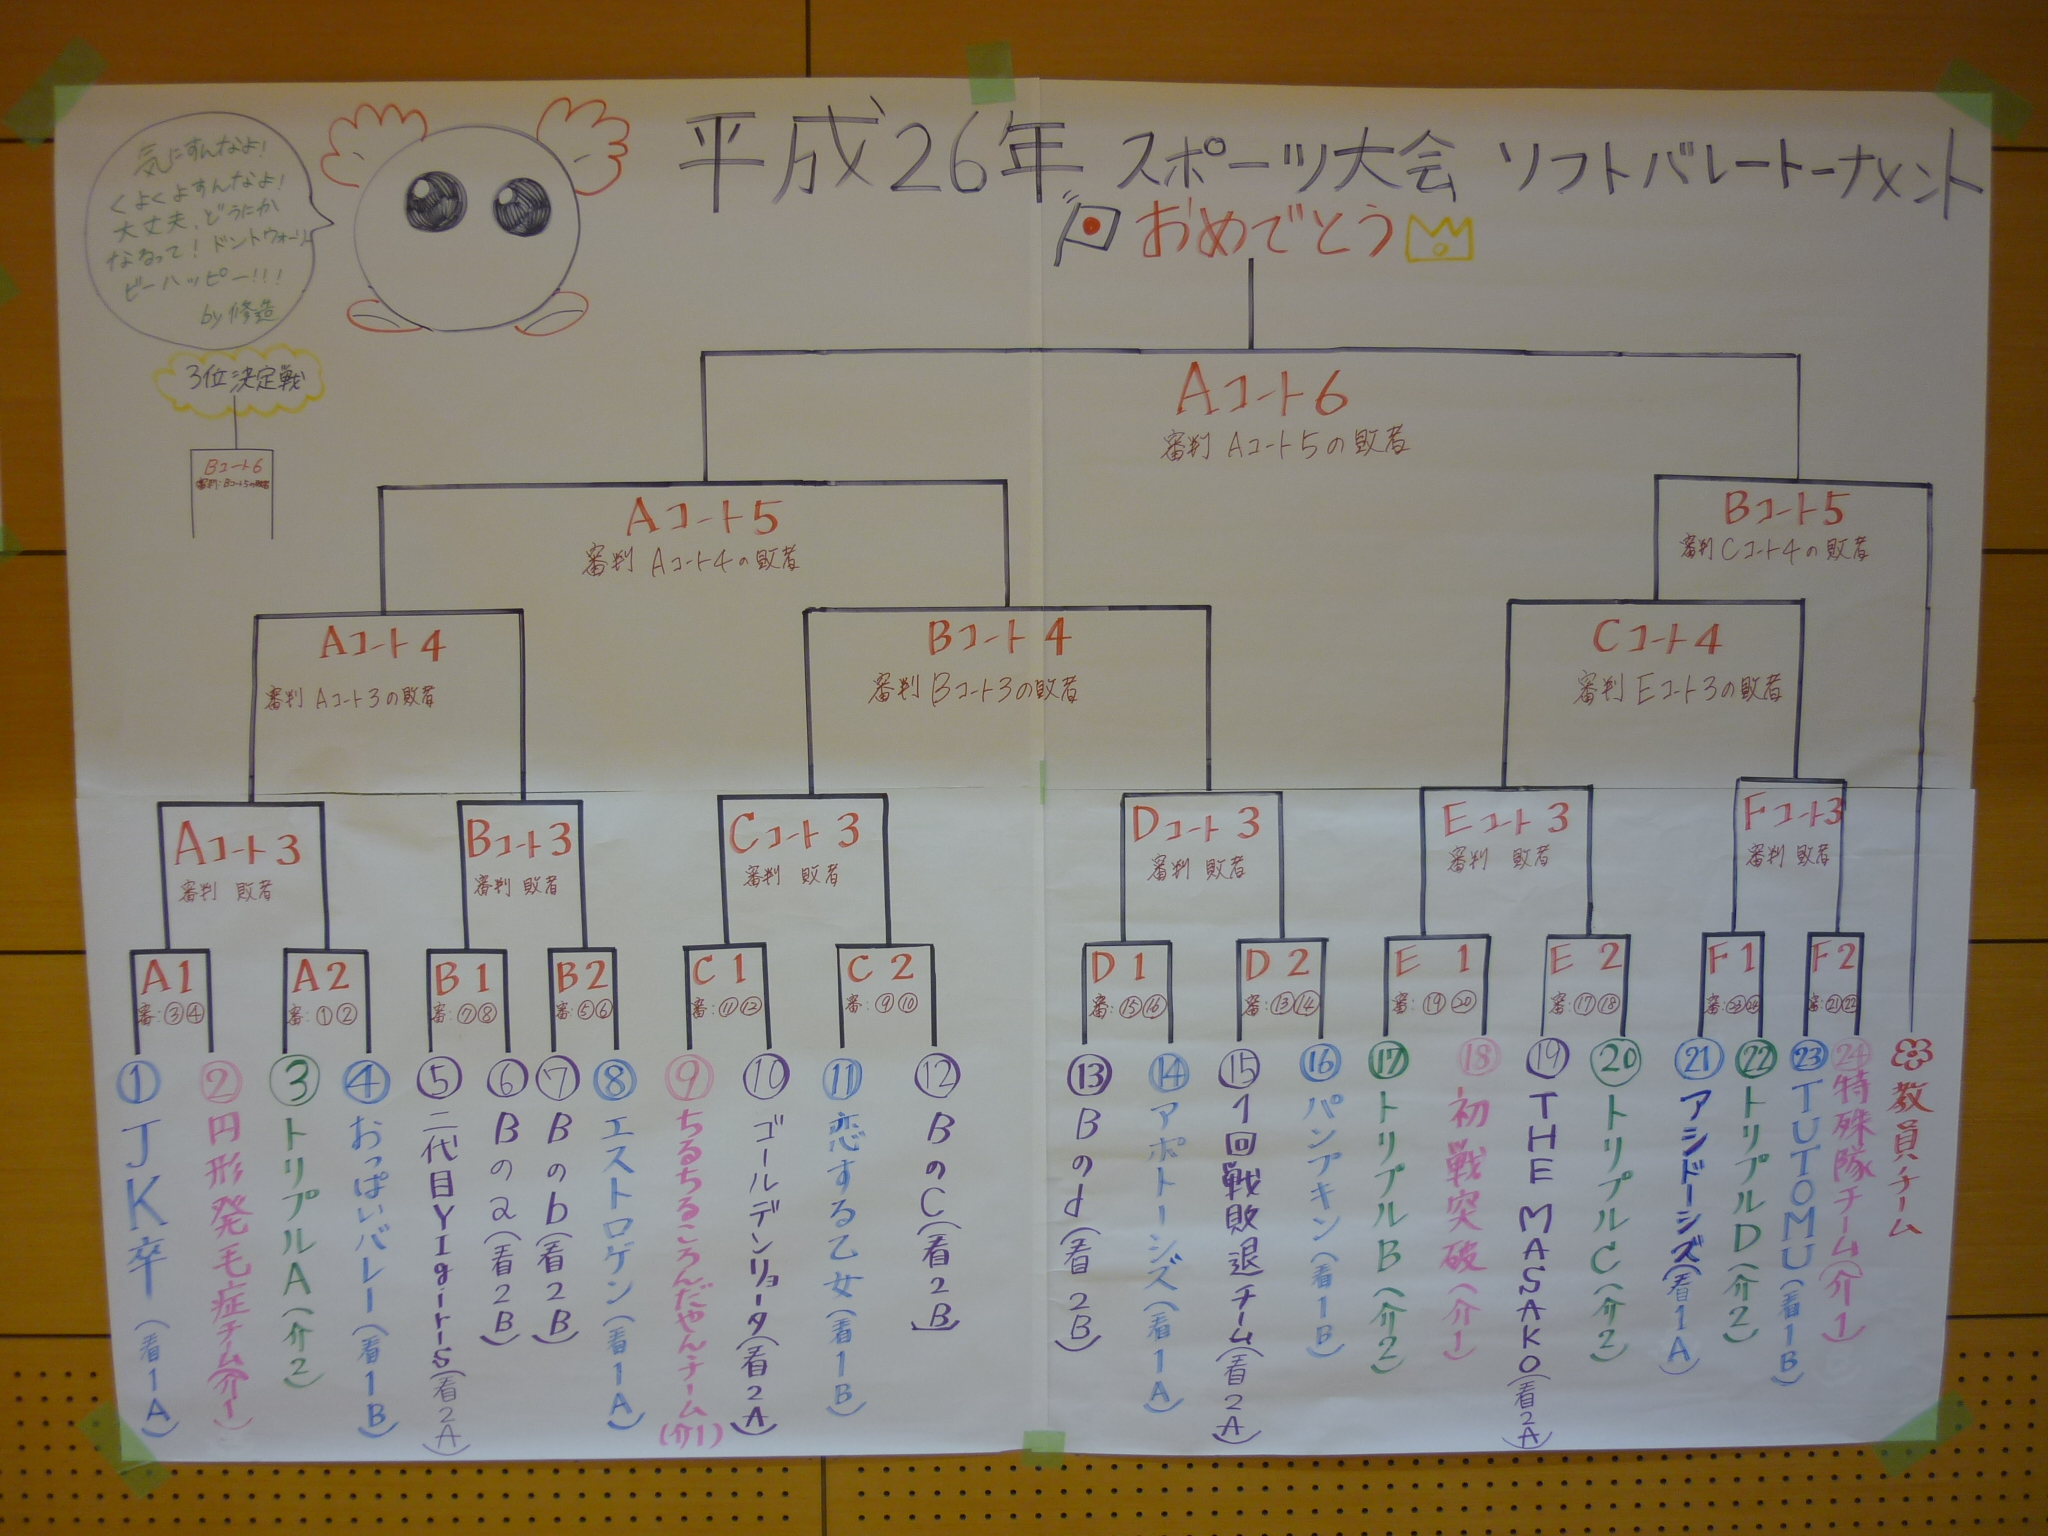 平成26年 スポーツ大会 ソフトバレートーナメント
おめでとう
気にすんなよ!
くよくよすんなよ!
大丈夫、どうにか
なるって! ドントウォーリー
ビーハッピー!!!
by 修造
3位決定戦
Bコート6
審判:Bコート5の敗者
Aコート6
審判 Aコート5の敗者
Aコート5
審判 Aコート4の敗者
Bコート5
審判 Cコート4の敗者
Aコート4
審判 Aコート3の敗者
Bコート4
審判 Bコート3の敗者
Cコート4
審判 Eコート3の敗者
Aコート3
審判 敗者
Bコート3
審判 敗者
Cコート3
審判 敗者
Dコート3
審判 敗者
Eコート3
審判 敗者
Fコート3
審判 敗者
A1
審:③④
A2
審:①②
B1
審:⑦⑧
B2
審:⑤⑥
C1
審:⑪⑫
C2
審:⑨⑩
D1
審:⑮⑯
D2
審:⑬⑭
E1
審:⑲⑳
E2
審:⑰⑱
F1
審:㉓㉔
F2
審:㉑㉒
① JK卒(看1A)
② 円形発毛症チーム(介1)
③ トリプルA(介2)
④ おっぱいバレー(看1B)
⑤ 二代目YIgートーS(看2A)
⑥ Bのa(看2B)
⑦ Bのb(看2B)
⑧ エストロゲン(看1A)
⑨ ちるちるころんだやんチーム(介1)
⑩ ゴールデンリョータ(看2A)
⑪ 恋する乙女(看1B)
⑫ BのC(看2B)
⑬ Bのd(看2B)
⑭ アポトーシズ(看1A)
⑮ 1回戦敗退チーム(看2A)
⑯ パンプキン(看1B)
⑰ トリプルB(介2)
⑱ 初戦突破(介1)
⑲ THE MASAKO(看2A)
⑳ トリプルC(介2)
㉑ アシドーシズ(看1A)
㉒ トリプルD(介2)
㉓ TUTOMU(看1B)
㉔ 特殊隊チーム(介1)
教員チーム